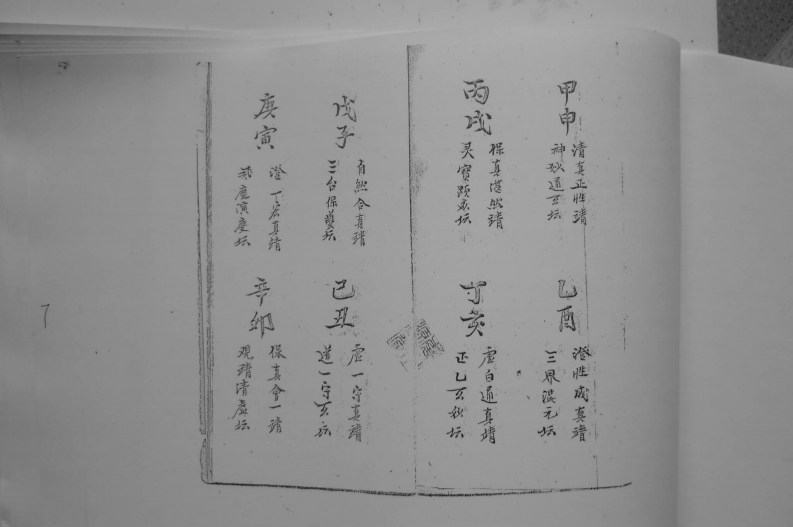 甲申
清真正性靖
神秘通玄坛
乙酉
澄性成真靖
三界混元坛
丙戌
保真湛然靖
灵寳蹟玄坛
丁亥
虚白通真靖
正乙玄秘坛
戊子
自然合真靖
三台保坛
己丑
虚一守真靖
道一守玄坛
庚寅
澄一宏真靖
演庆坛
辛卯
保真會一靖
观靖清虚坛
7